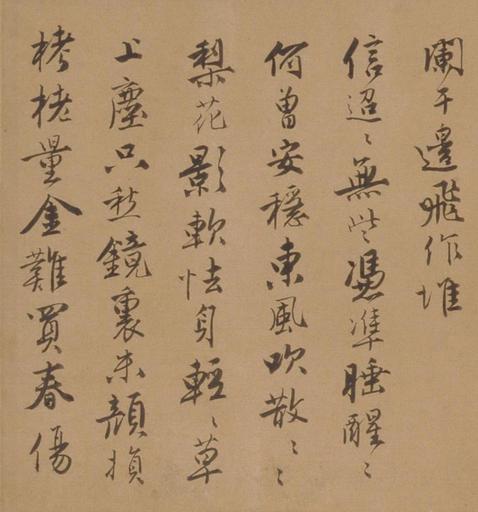 闌干邊飛作堆
信迢〻無些憑準睡醒〻
何曾安穩東風吹散〻〻
梨花影軟怯身輕〻草
上塵只愁鏡裏朱顏損
栲栳量金難買春傷